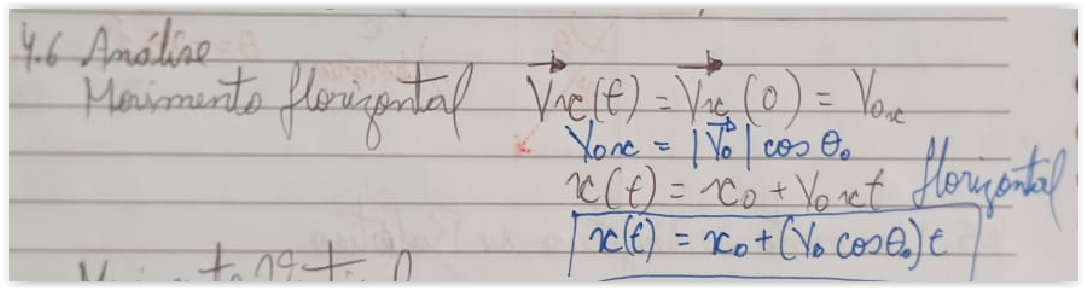 4.6 Análise
Movimento Horizontal $\vec{V}_x(t) = \vec{V}_x(0) = V_{0x}$
$V_{0x} = |\vec{V_0}| \cos\theta_0$
$x(t) = x_0 + V_{0x}t$ Horizontal
$x(t) = x_0 + (V_0 \cos\theta_0)t$